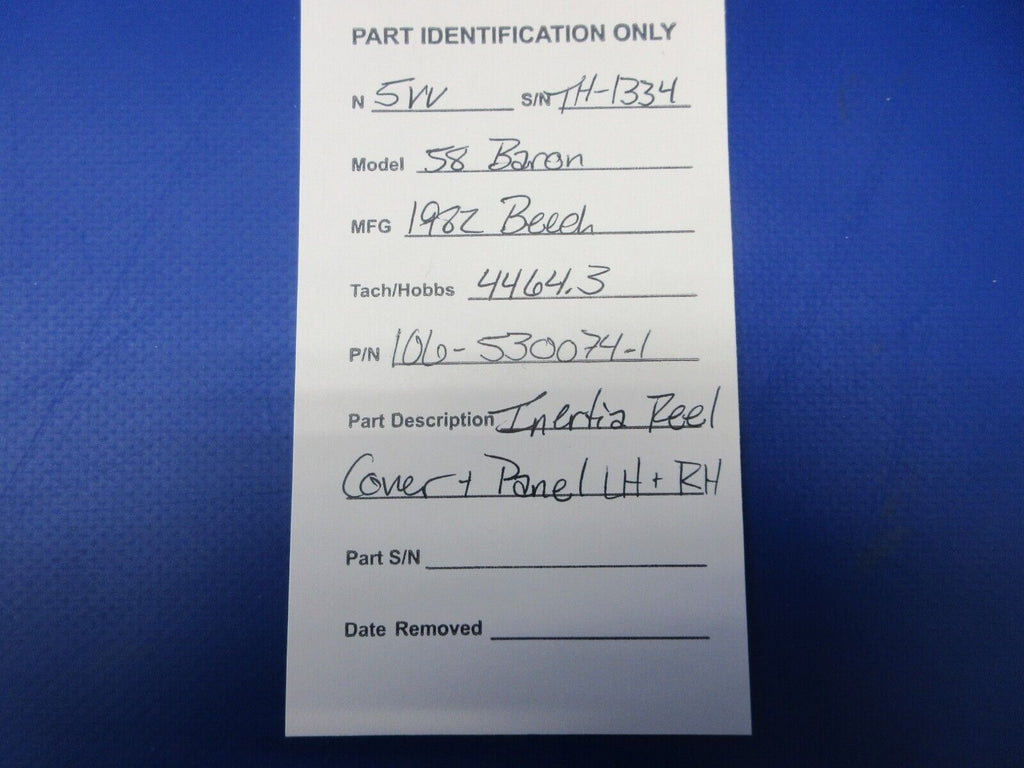 PART IDENTIFICATION ONLY
N 5VV S/N TH-1334
Model 58 Baron
MFG 1982 Beech
Tach/Hobbs 4464.3
P/N 106-530074-1
Part Description Inertia Reel
Cover + Panel LH + RH
Part S/N
Date Removed